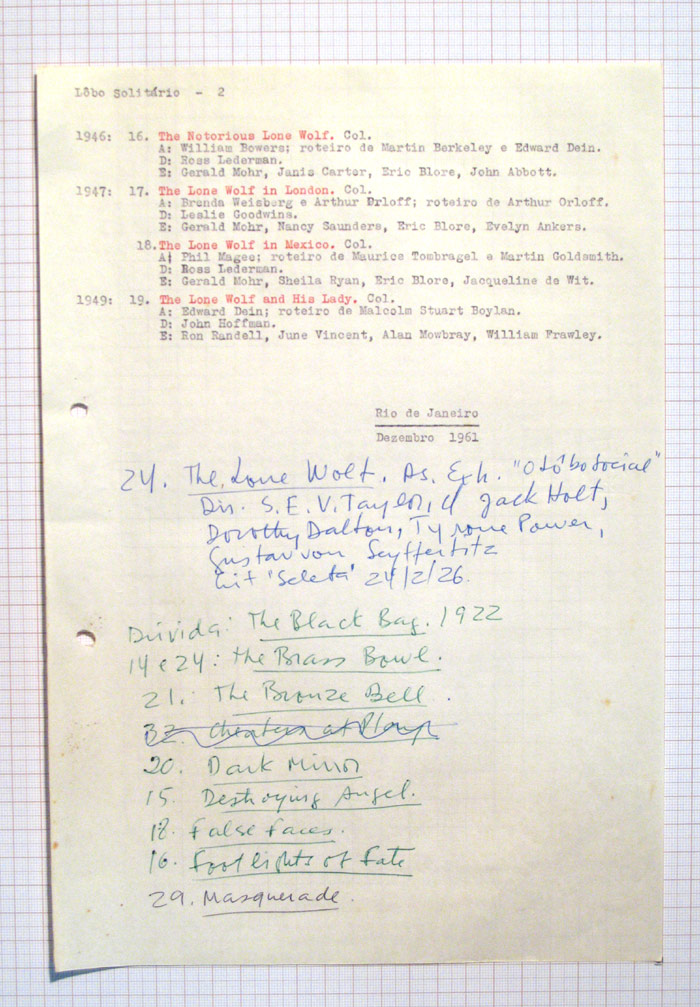 Lôbo Solitário - 2
1946: 16. The Notorious Lone Wolf. Col.
A: William Bowers; roteiro de Martin Berkeley e Edward Dein.
D: Ross Lederman.
E: Gerald Mohr, Janis Carter, Eric Blore, John Abbott.
1947: 17. The Lone Wolf in London. Col.
A: Brenda Weisberg e Arthur Orloff; roteiro de Arthur Orloff.
D: Leslie Goodwins.
E: Gerald Mohr, Nancy Saunders, Eric Blore, Evelyn Ankers.
18. The Lone Wolf in Mexico. Col.
A: Phil Magee; roteiro de Maurice Tombragel e Martin Goldsmith.
D: Ross Lederman.
E: Gerald Mohr, Sheila Ryan, Eric Blore, Jacqueline de Wit.
1949: 19. The Lone Wolf and His Lady. Col.
A: Edward Dein; roteiro de Malcolm Stuart Boylan.
D: John Hoffman.
E: Ron Randell, June Vincent, Alan Mowbray, William Frawley.
Rio de Janeiro
Dezembro 1961
24. The Lone Wolf. As. Exh. "O Lôbo Social"
Dir. S. E. V. Taylor, c/ Jack Holt,
Dorothy Dalton, Tyrone Power,
Gustav von Seyffertitz
'Seleta' 24/2/26.
Dúvida: The Black Bag. 1922
14 e 24: The Brass Bowl.
21. The Bronze Bell.
32. Cheaters at Play
20. Dark Mirror
15. Destroying Angel.
18. False Faces.
16. Footlights of Fate
29. Masquerade.